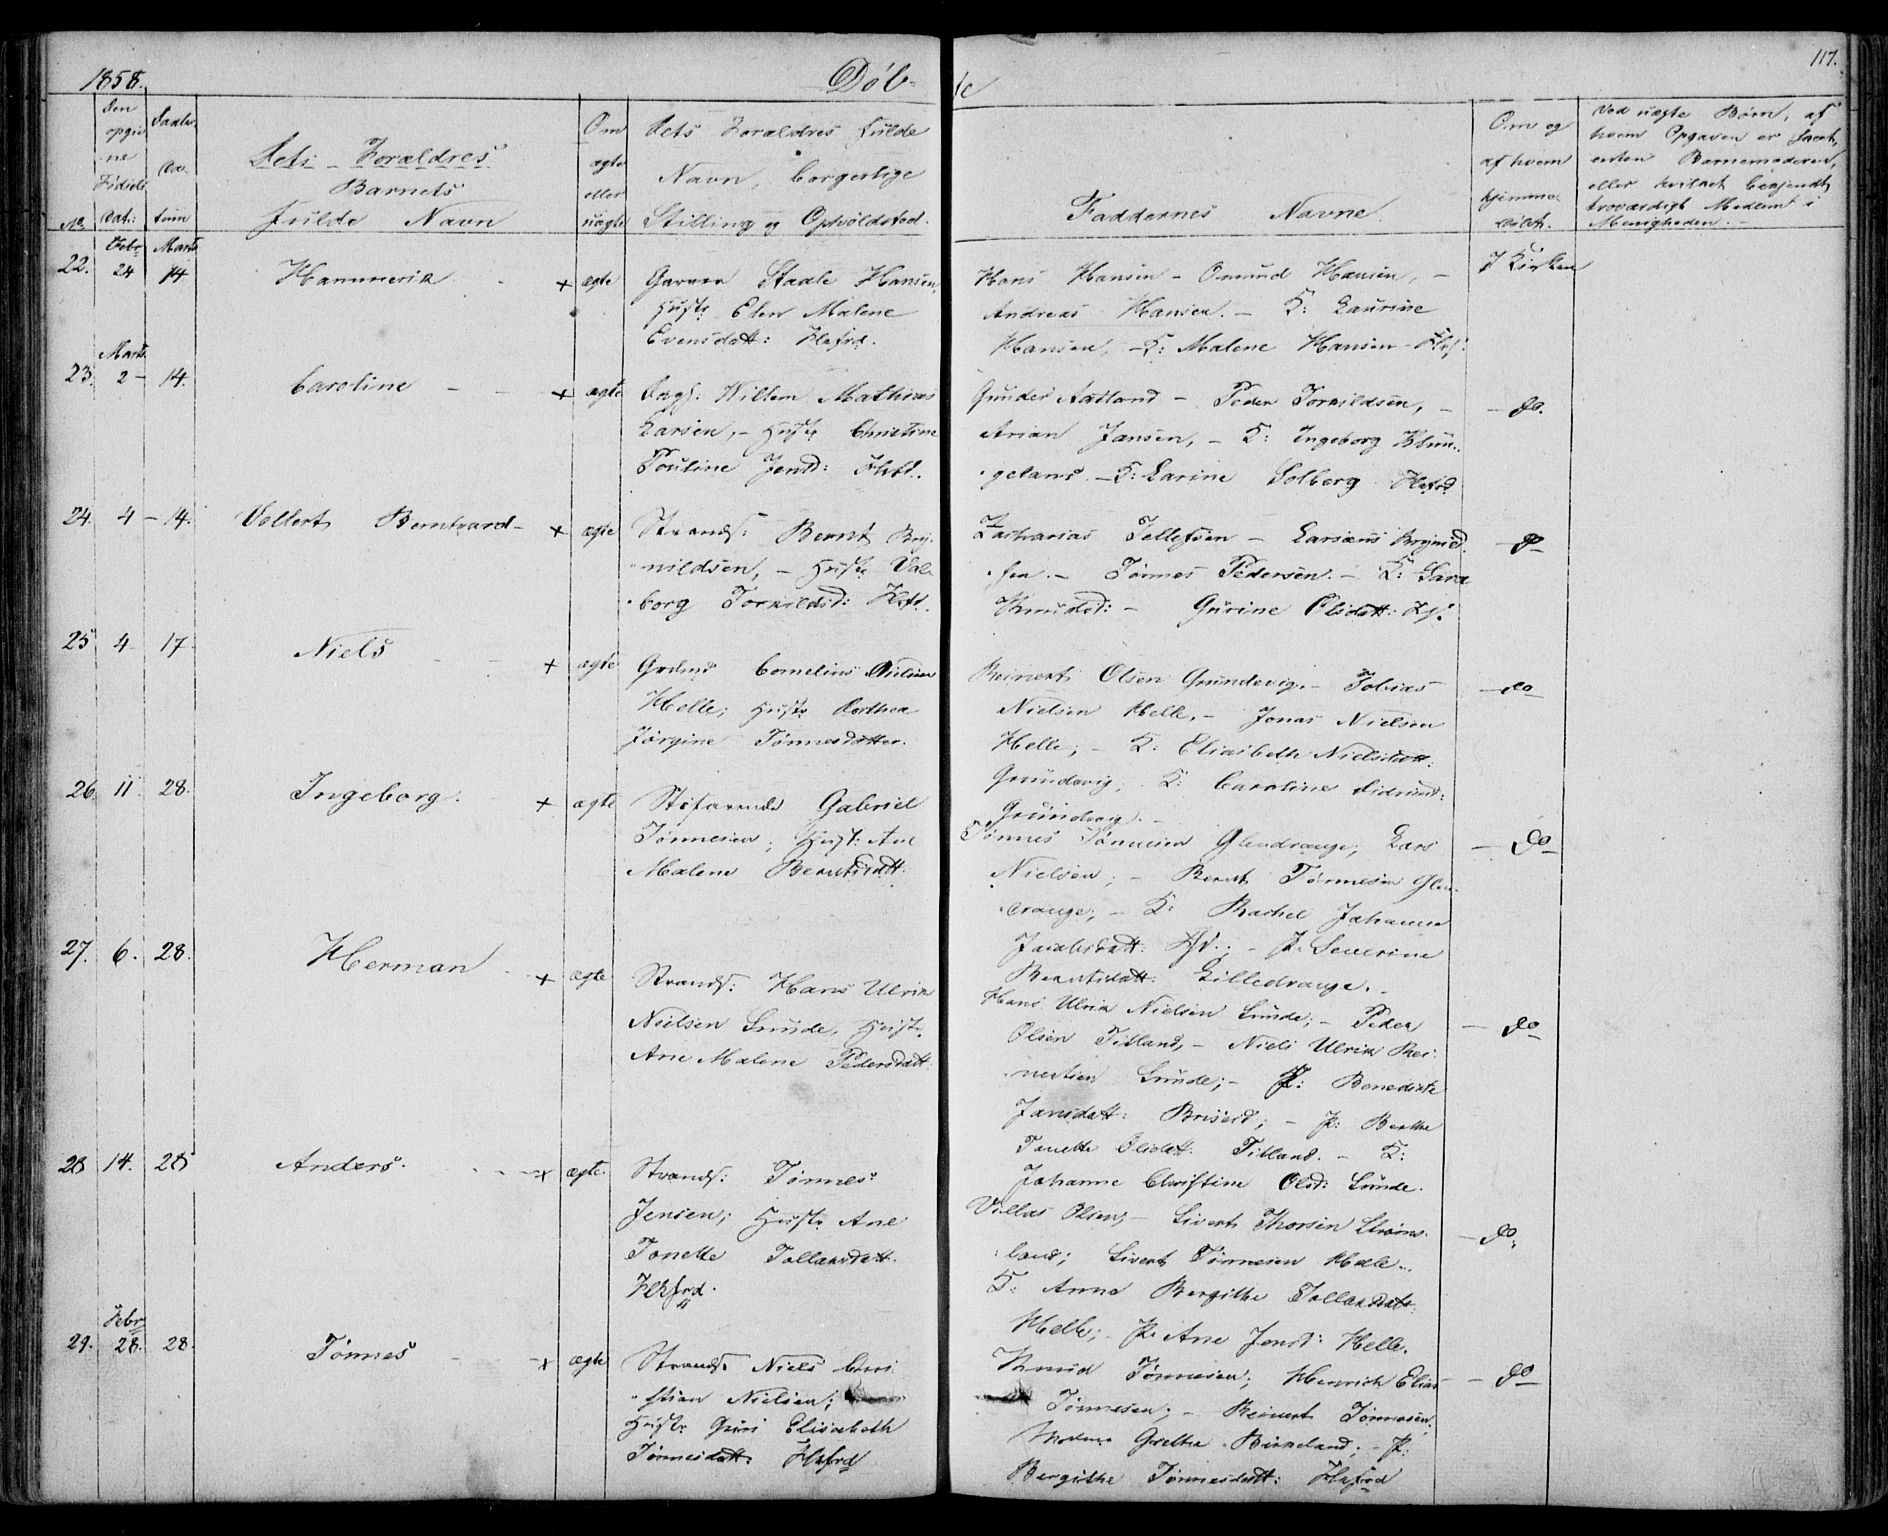 1858.
Døb-
te
117.
Den opgivne Fødsels Dat:
Daabs Datum
Dets Forældres
Barnets
fulde Navn
No
Om ægte eller uægte
Dets Forældres fulde
Navn, borgerlige
Stilling og Opholdsted.
Faddernes Navne.
Om og af hvem hjemme døbt.
Ved uægte Børn, af
hvem Opgaven er skeet,
enten Barnemoderen,
eller hvilket bekjendt
troværdigt Medlemt i
Menigheden. -
Febr Marts
22. 24 14 Hammerik + ægte Garver Staale Hansen,
Hustr Elen Malene
Evensdatt: Flefrd.
Hans Hansen - Omund Hansen, -
Andreas Hansen. - K: Laurine
Hansen, - K: Malene Hansen Flf:
I Kirken
Marts
23. 2 - 14. Caroline - + ægte Dags: Willem Mathias
Larsen, - Hustr Christine
Pouline Jensd: Flefd.
Gunder Aatland - Peder Torkildsen, -
Arian Jansen, - K:
Ingeborg Klun-
geland - K: Larine Solberg Flefrd
- do.
24. 4 - 14. Vollert Berntvard - + ægte Strands: Bernt Bry-
nildsen, - Hustr Val-
borg Torkildsd: Flefd.
Zacharias Tellefsen - Larsens Brynild-
sen. - Tønnes Pedersen. - K: Sara
Knudsd: - Gurine Olsdatt:
- do -
25 4 - 17 Niels + ægte Grdmd Cornelius Nielsen
Helle; Hustr Dorthea
Jørgine Tønnesdatter.
Reinert Olsen Grundevig. - Tobias
Nielsen Helle, - Jonas Nielsen
Helle; - K: Elisabeth Nielsdatt:
Grundevig; K: Caroline
Grundevig. -
- do -
26. 11 28. Ingeborg. + ægte Søfarende Gabriel
Tønnesen; Hust: Ane
Malene Berntsdatt
Tønnes Tønnesen Glendrange; Lars
Nielsen; - Bernt Tønnesen Glen-
drange; - K: Rachel Johanne
Jacobsdatt: - P: Severine
Berntsdatt: Lilledrange. -
- do -
27. 6. 28. Herman + ægte Strands: Hans Ulrik
Nielsen Sunde, Hustr
Ane Malene Pedersdatt:
Hans Ulrik Nielsen Sunde; - Peder
Olsen Titland, - Niels Ulrik Rei-
nertsen Sunde; - P: Benedikte
Jansdatt: - P: Berthe
Tonette Olsdatt: Titland. - K:
Johanne Christine Olsd: Sunde.
- do -
28 14. 28 Anders. + ægte. Strands: Tønnes
Jensen; Hustr Ane
Tonette Tollaksdatt.
Flkfrd.
Villas Olsen, - Sivert Thorsen Strøms-
land; Sivert Tønnesen Helle.
K: Anne Bergithe Tollaksdatt
Helle; P: Ane Jensd: Helle.
- do:
Febr
29. 28. 28. Tønnes - + ægte Strands: Niels Chri-
stian Nielsen;
Hustr Guri Elisabeth
Tønnesdatt: Flkfrd
Knud Tønnesen; Henrich Elias
Tønnesen; - Reinert Tønnesen;
Grethe Birkeland; - P:
Bergithe Tønnesdatt: Flkfrd
- do -